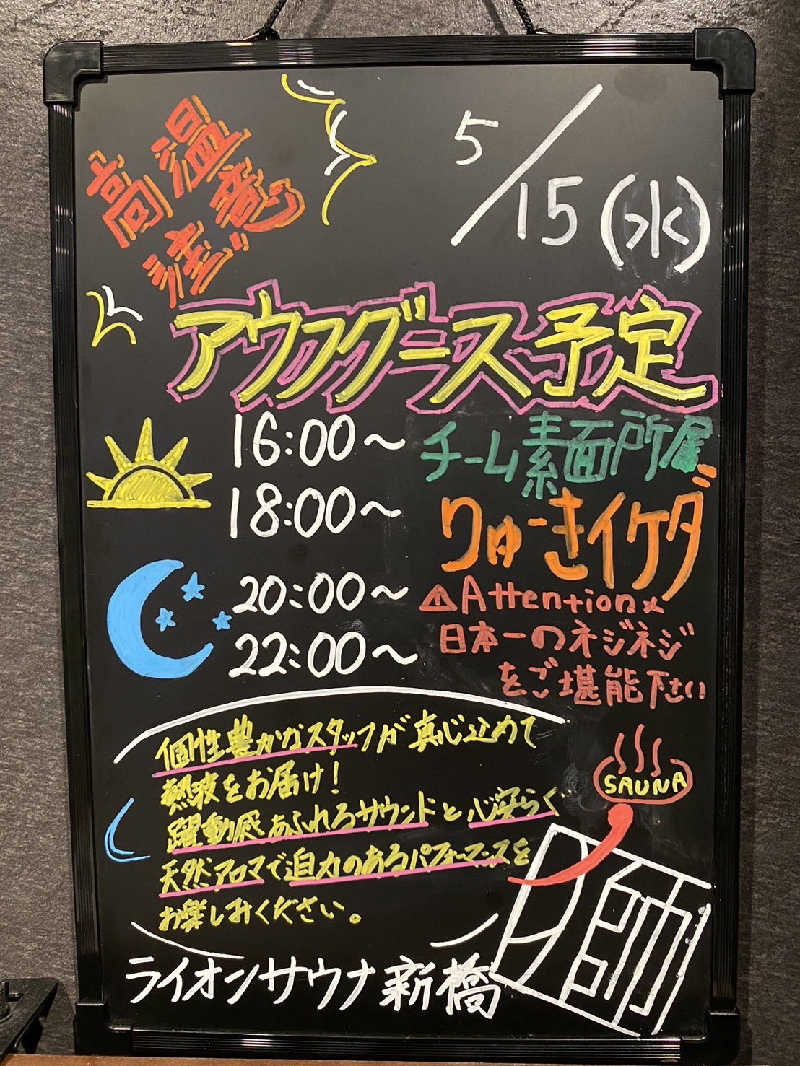 高温
注意
5/15(水)
アウフグース予定
16:00～
18:00～
20:00～
22:00～
チーム素面所属
りゅーきイケダ
⚠Attention⚠
日本一のネジネジ
をご堪能下さい
個性豊かなスタッフが真心込めて
熱波をお届け!
躍動感あふれるサウンドと心安らぐ
天然アロマで迫力のあるパフォーマンスを
お楽しみください。
SAUNA
師
ライオンサウナ新橋